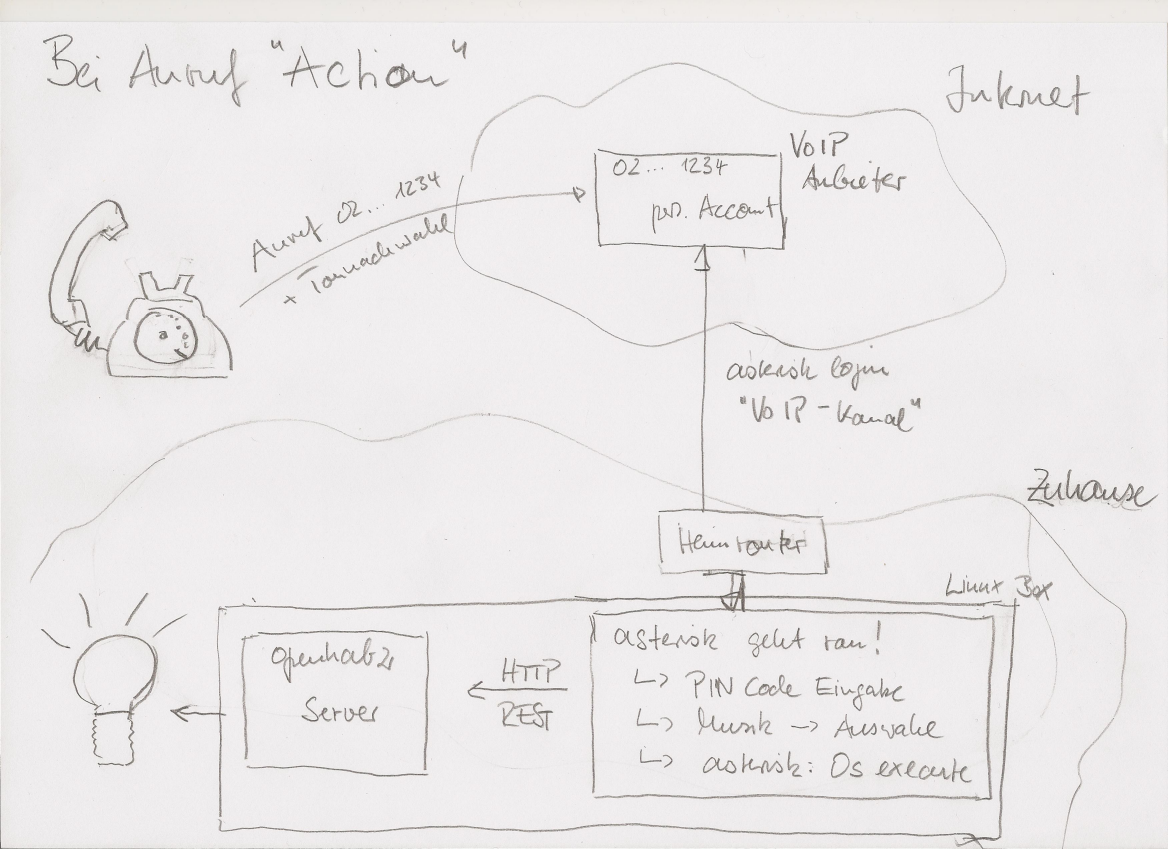 Bei Anruf "Action"
Internet
VoIP
Anbieter
02... 1234
pers. Account
Anruf 02... 1234
+ Tonnachwahl
asterisk login
"VoIP-Kanal"
Zuhause
Heimrouter
Linux Box
openhab2
Server
HTTP
REST
asterisk geht ran!
↳ PIN Code Eingabe
↳ Musik → Auswahl
↳ asterisk: Os execute